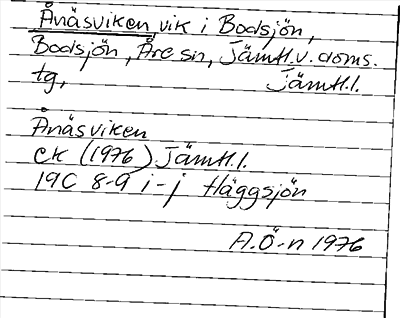 Ånäsviken, vik i Bodsjön,
Bodsjön, Åre sn, Jämtl. v. doms.
tg, Jämtl.l.
Ånäsviken
EK (1976) Jämtl.l.
19C 8-9 i-j Häggsjön
A.Ö-n 1976